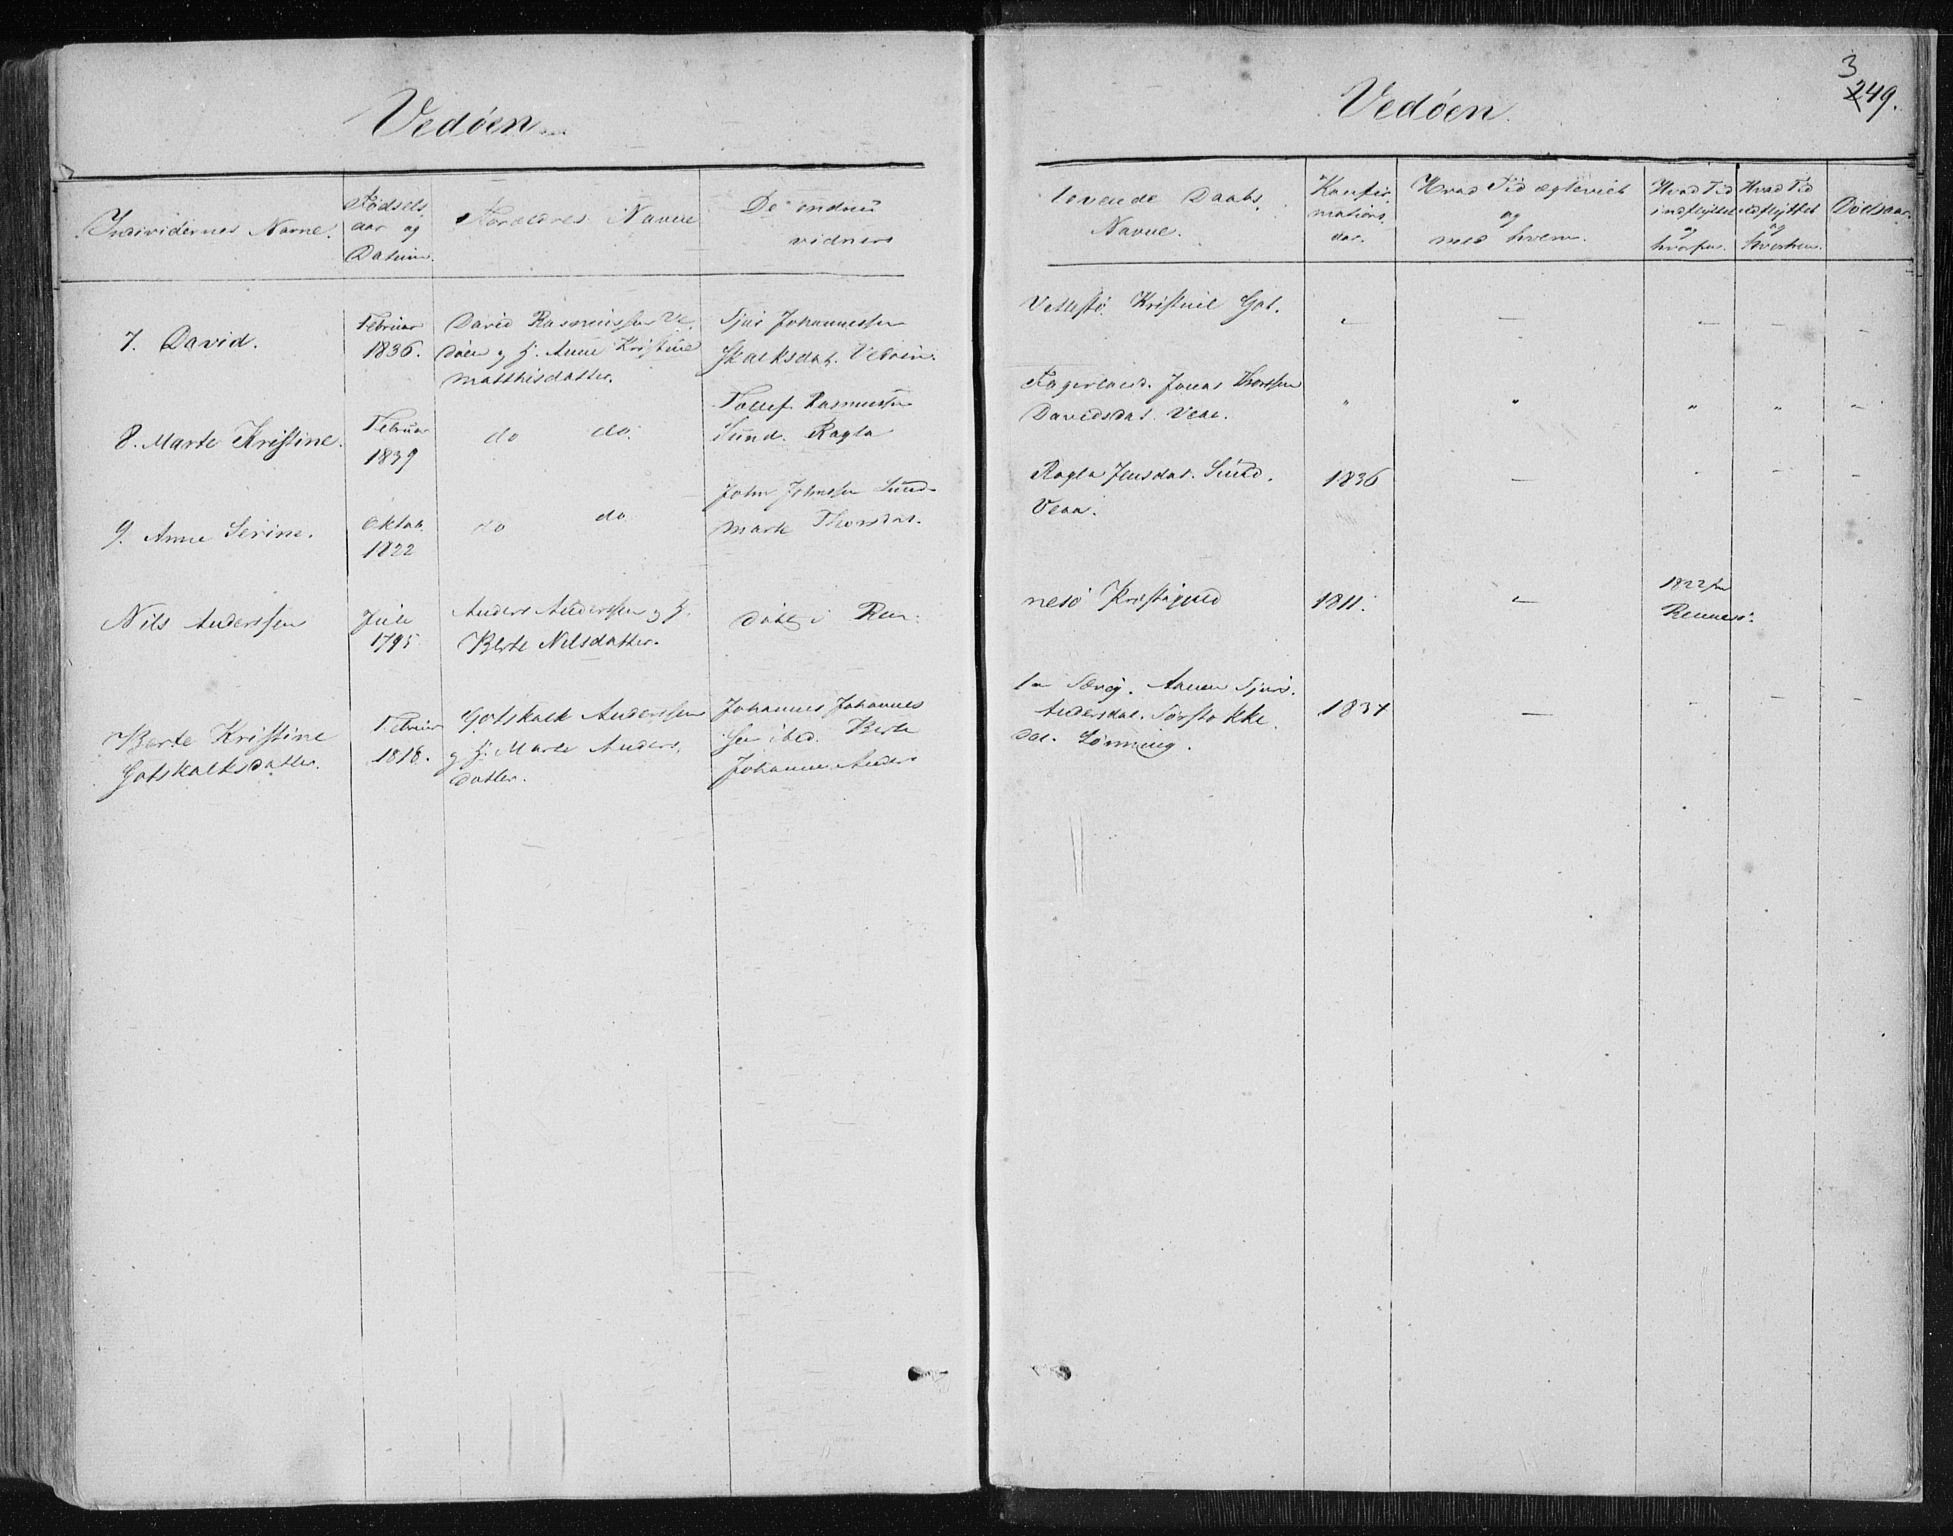 Vedöen
Individernes Navne.
Fødsels
aar og
Datum.
Forældres Navne
De endnu
vidners
7. David.
Februar
1836.
David Rasmussen Ve
döen og H. Anne Kristine
Matthisdatter.
Sjur Johannessen
Skalksdat. Vedöen.
8. Marte Kristine.
Februar
1839
do do.
Tollef Rasmussen
Sund. Ragla
9. Anne Serine.
Oktob.
1822
do do
John Johnsen Sund
Marte Thorsdat.
Nils Anderssen
Juli
1795.
Anders Anderssen og H.
Berte Nilsdatter.
döbt i Ren
Berte Kristine
Gotskalksdatter.
Februar
1818.
Gotskalk Anderssen
og H. Marte Anders
datter.
Johannes Johannes
sen ibid. Berte
Johanne Anders
3
249.
Vedöen.
levende Daabs
Navne.
Konfir
mations
aar.
Hvad Tid ægteviet
og
med hvem.
Hvad Tid
indflyttet
og
hvorfra.
Hvad Tid
udflyttet
og
hvorhen.
Dödsaar.
Vestestö. Kristine Got.
Fagerland. Jonas Thorssen
Davidsdat. Veae.
Ragla Jensdat. Sund.
Veaa.
1836
nesö Kristigjerd
1811.
1822 fra
Rennesö.
Sævig. Anne Sjurs.
Andersdat. Torstokke
dal. Lönning.
1834